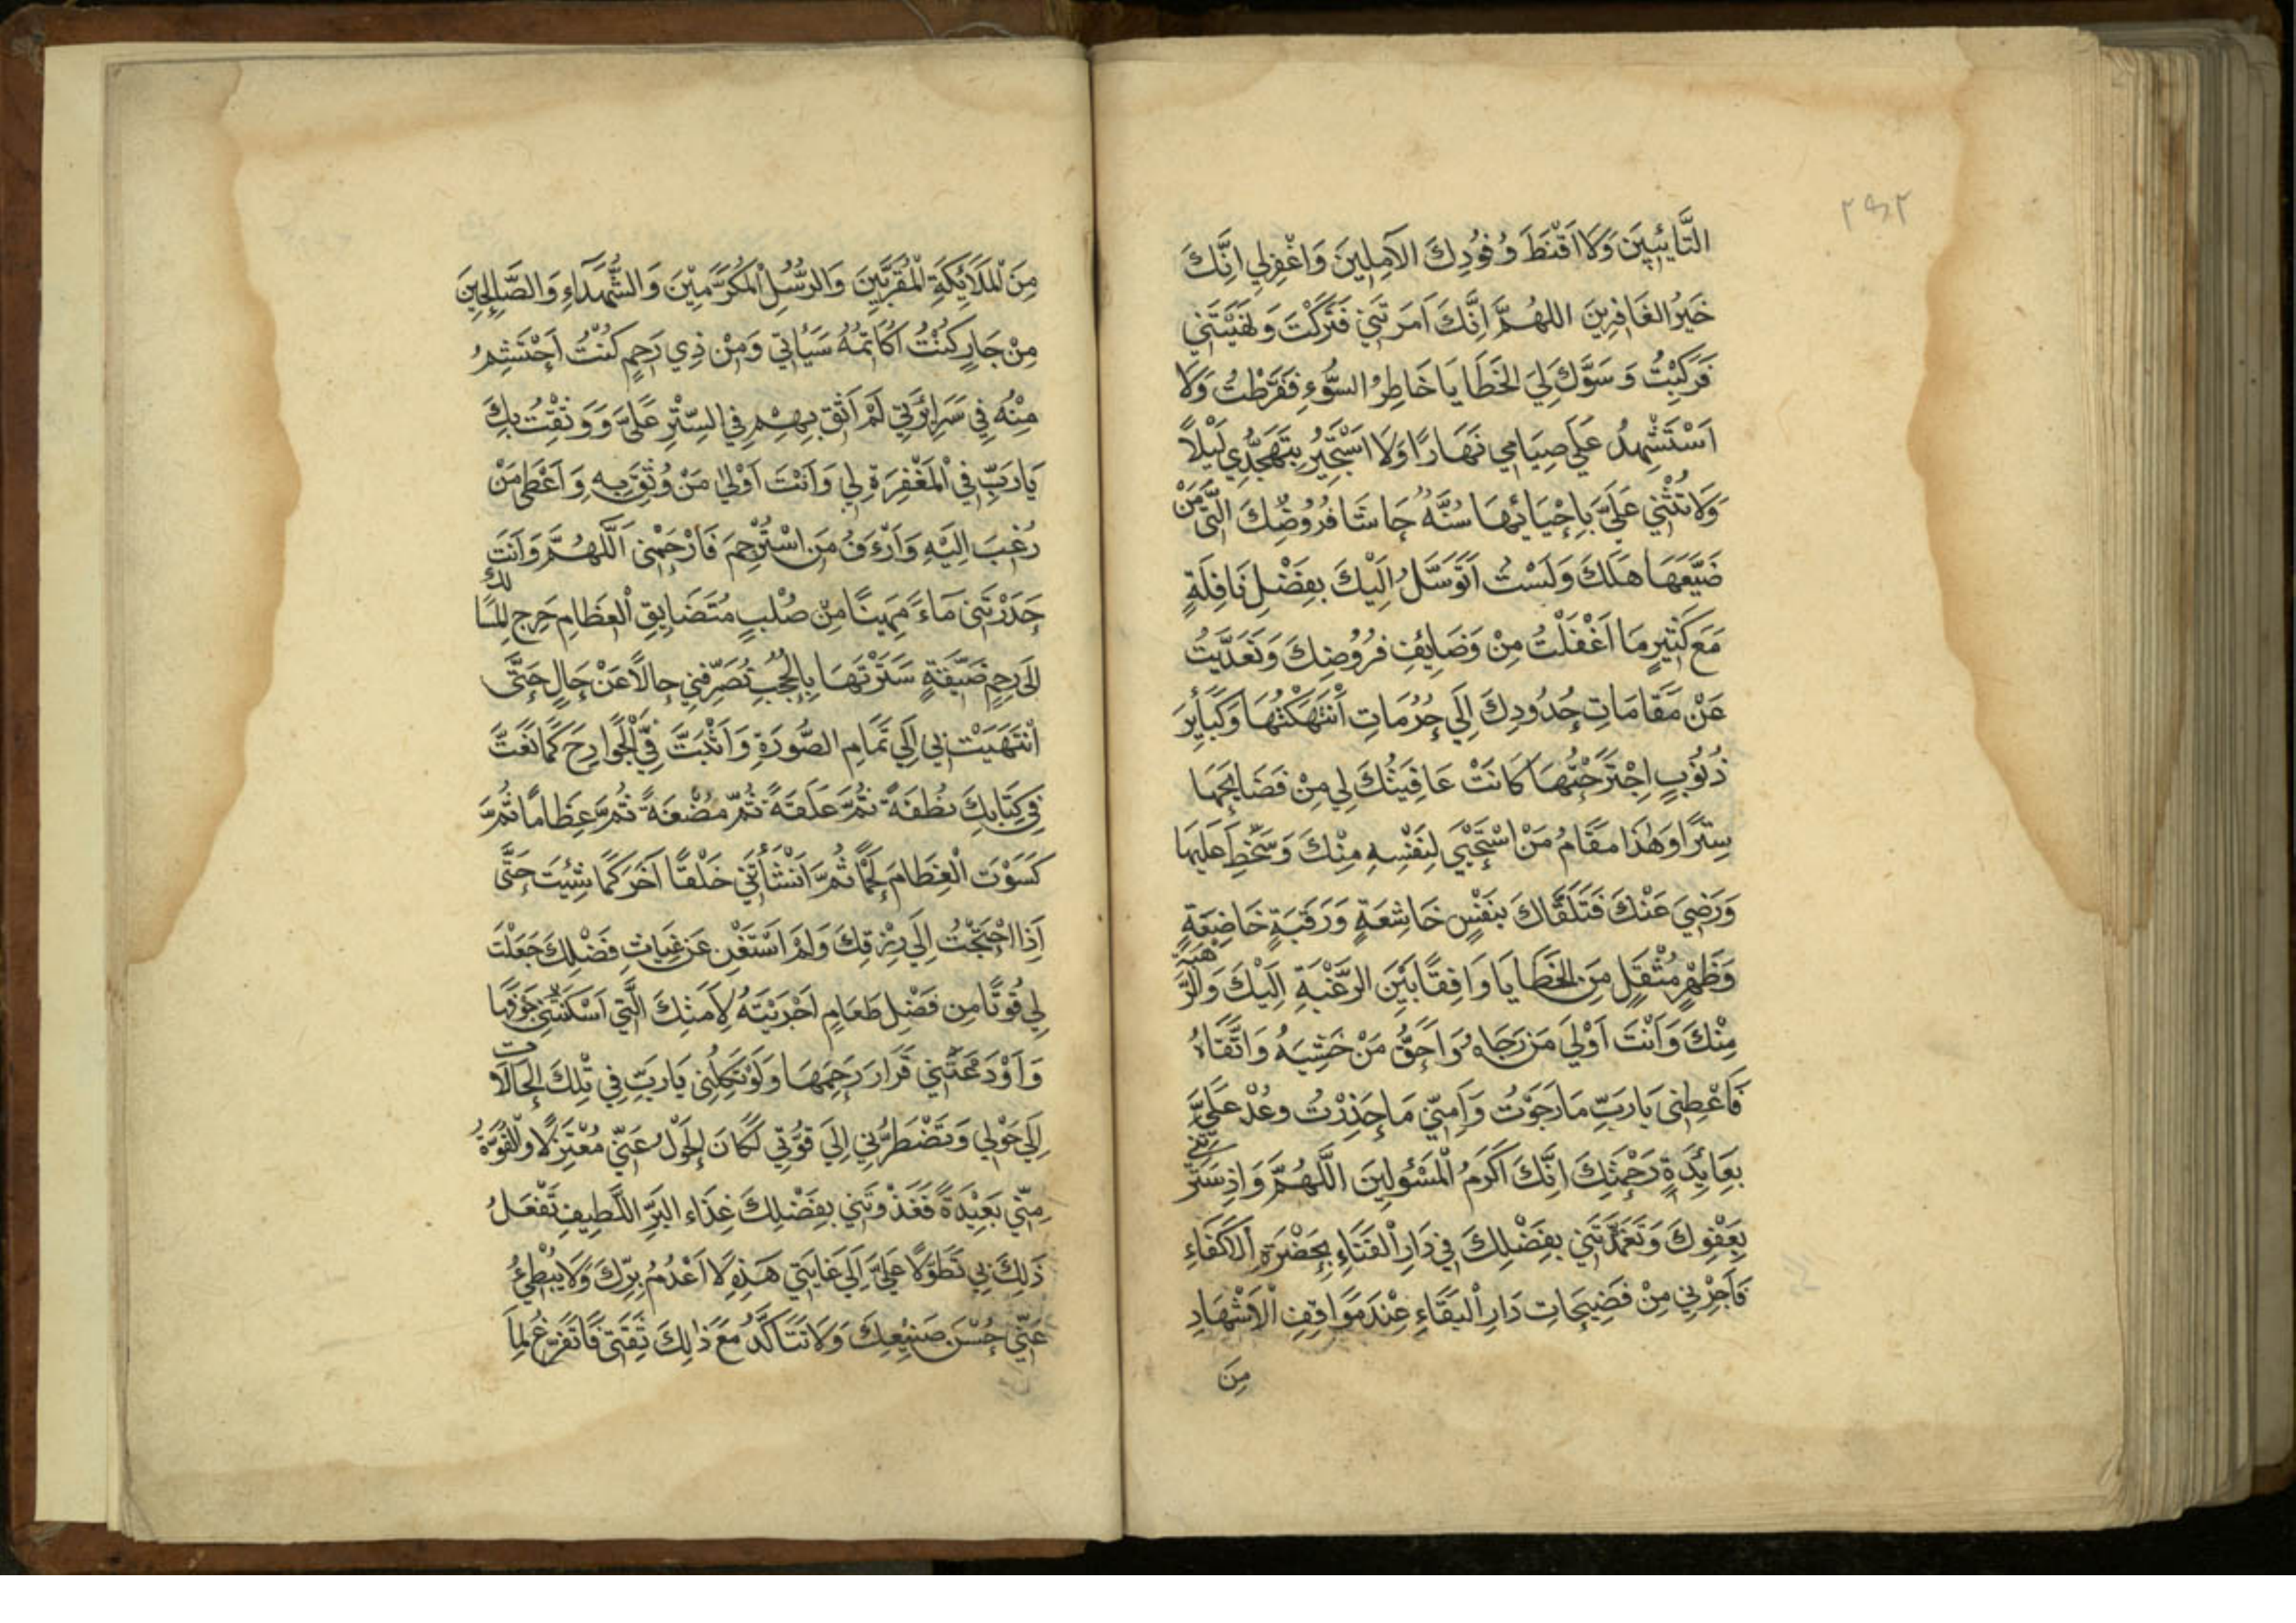 ٢٩٢
التَّايِبِينَ وَلَا اَقْنَطَ وُفُودِكَ الآمِلِينَ وَاغْفِرلِي اِنَّكَ
خَيْرُ الغَافِرِينَ اللهُمَّ اِنَّكَ اَمَرتَنِي فَتَرَكْتَ وَنَهَيْتَنِي
فَرَكِبْتُ وَسَوَّلَ لِيَ الخَطَايَا خَاطِرُ السُّوءِ فَفَرَّطْتُ وَلَا
اَسْتَشْهِدُ عَلَى صِيَامِي نَهَارًا وَلَا اسْتَجِيرُ بِتَهَجُّدِي لَيْلًا
وَلَا تُثْنِي عَلَيَّ بِاِحْيَائِهَا سُنَّةٌ حَاشَا فُرُوضِكَ الَّتِي مَنْ
ضَيَّعَهَا هَلَكَ وَلَسْتُ اَتَوَسَّلُ اِلَيْكَ بِفَضْلِ نَافِلَةٍ
مَعَ كَثِيرِ مَا اَغْفَلْتُ مِنْ وَضَايِفِ فُرُوضِكَ وَتَعَدَّيْتُ
عَنْ مَقَامَاتِ حُدُودِكَ اِلَى حُرُمَاتٍ اَنْتَهَكْتُهَا وَكَبَايِرَ
ذُنُوبٍ اِجْتَرَحْتُهَا كَانَتْ عَافِيَتُكَ لِي مِنْ فَضَايِحِهَا
سِتْرًا وَهٰذَا مَقَامُ مَنْ اسْتَحْيَى لِنَفْسِهِ مِنْكَ وَسَخِطَ عَلَيهَا
وَرَضِيَ عَنْكَ فَتَلَقَّاكَ بِنَفْسٍ خَاشِعَةٍ وَرَقَبَةٍ خَاضِعَةٍ
وَظَهْرٍ مُثْقَلٍ مِنَ الخَطَايَا وَاقِفًا بَيْنَ الرَّغْبَةِ اِلَيْكَ وَالرَّهْبَةِ
مِنْكَ وَاَنْتَ اَوْلَى مَنْ رَجَاهُ وَاَحَقُّ مَنْ خَشِيَهُ وَاتَّقَاهُ
فَاَعْطِنِى يَارَبِّ مَا رَجَوْتُ وَاَمِنِّي مَا حَذِرْتُ وعُدْ عَلَيَّ
بِعَايِدَةِ رَحْمَتِكَ اِنَّكَ اَكْرَمُ الْمَسْئُولِينَ اللَّهُمَّ وَاِذ سَتَرْتَنِي
بِعَفْوِكَ وَتَغَمَّدْتَنِي بِفَضْلِكَ فِي دَارِ الْفَنَاءِ بِحَضْرَةِ الاَكْفَاءِ
فَاَجِرْنِي مِنْ فَضِيحَاتِ دَارِ الْبَقَاءِ عِنْدَ مَوَاقِفِ الْاَشْهَادِ
مِنَ
مِنَ الْمَلَائِكَةِ الْمُقَرَّبِينَ وَالرُّسُلِ الْمُكَرَّمِيْنَ وَالشُّهَدَاءِ وَالصَّالِحِينَ
مِنْ جَارٍ كُنْتُ اُكَاتِمُهُ سَيِّاٰتِي وَمِنْ ذِي رَحِمٍ كُنْتُ اَحْتَشِمُ
مِنْهُ فِي سَرِائِرَتِي لَمْ اَثِقْ بِهِمْ فِي السِّتْرِ عَلَيَّ وَوَثِقْتُ بِكَ
يَارَبِّ فِي الْمَغْفِرَةِ لِي وَاَنْتَ اَوْلٰى مَنْ وُثِقَ بِهِ وَاَعْطٰى مَنْ
رُغِبَ اِلَيْهِ وَاَرْءَفُ مَنِ اسْتُرْحِمَ فَارْحَمْنِى اَللَّهُمَّ وَاَنتَ
حَدَرْتَنِى مَاءً مَهِينًا مِنْ صُلْبٍ مُتَضَايِقِ الْعِظَامِ حَرِجِ المَسَالِكِ
اِلَى رَحِمٍ ضَيِّقَةٍ سَتَرْتَهَا بِالْحُجُبِ تُصَرِّفُنِي حَالًا عَنْ حَالٍ حَتَّى
انْتَهَيْتَ بِي اِلَى تَمَامِ الصُّورَةِ وَاَثْبَتَّ فِيَّ الْجَوَارِحَ كَمَا نَعَتَّ
فِي كِتَابِكَ نُطْفَةً ثُمَّ عَلَقَةً ثُمَّ مُضْغَةً ثُمَّ عِظَامًا ثُمَّ
كَسَوْتَ الْعِظَامَ لَحْمًا ثُمَّ اَنْشَأْتَنِي خَلْقًا آخَرَ كَمَا شِئْتَ حَتَّى
اِذَا احْتَجْتُ اِلَى رِزْقِكَ وَلَمْ اَسْتَغْنِ عَنْ غِيَاثِ فَضْلِكَ جَعَلْتَ
لِي قُوتًا مِن فَضْلِ طَعَامٍ اَجْرَيْتَهُ لِاَمَتِكَ الَّتِي اَسْكَنْتَنِي جَوْفَهَا
وَاَوْدَعْتَنِي قَرَارَ رَحِمِهَا وَلَوْ تَكِلْنِى يَارَبِّ فِي تِلْكَ الْحَالَاتِ
اِلَى حَوْلِي وَتَضْطَرُّنِي اِلَى قُوَّتِي لَكَانَ الْحَوْلُ عَنِّي مُعْتَزِلًا وَالْقُوَّةُ
مِنِّي بَعِيْدَةً فَغَذَوْتَنِي بِفَضْلِكَ غِذَاءَ البَرِّ اللَّطِيفِ تَفْعَلُ
ذَلِكَ بِي تَطَوُّلًا عَلَيَّ اِلَى غَايَتِي هَذِهِ لَا اَعْدُمُ بِرَّكَ وَلَا يُبْطِئُ
عَنِّي حُسْنَ صَنِيْعِكَ وَلَا تَتَاَكَّدُ مَعَ ذٰلِكَ ثِقَتِى فَاَتَفَرَّغُ لِمَا